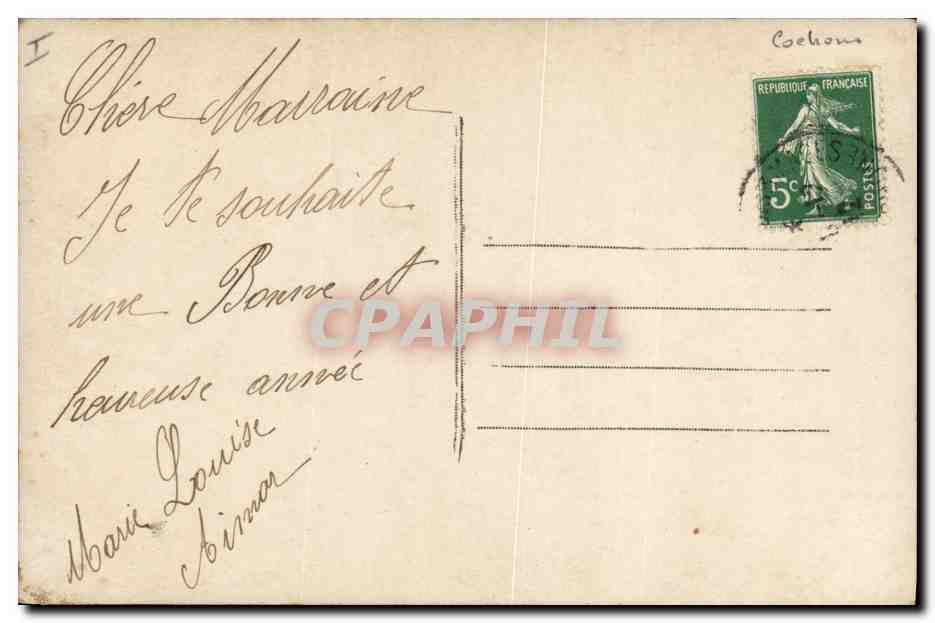 I
Cochons
Chère Marraine
Je te souhaite
une Bonne et
heureuse année
Marie Louise
Aimar
REPUBLIQUE FRANÇAISE
5c
POSTES
CPAPHIL